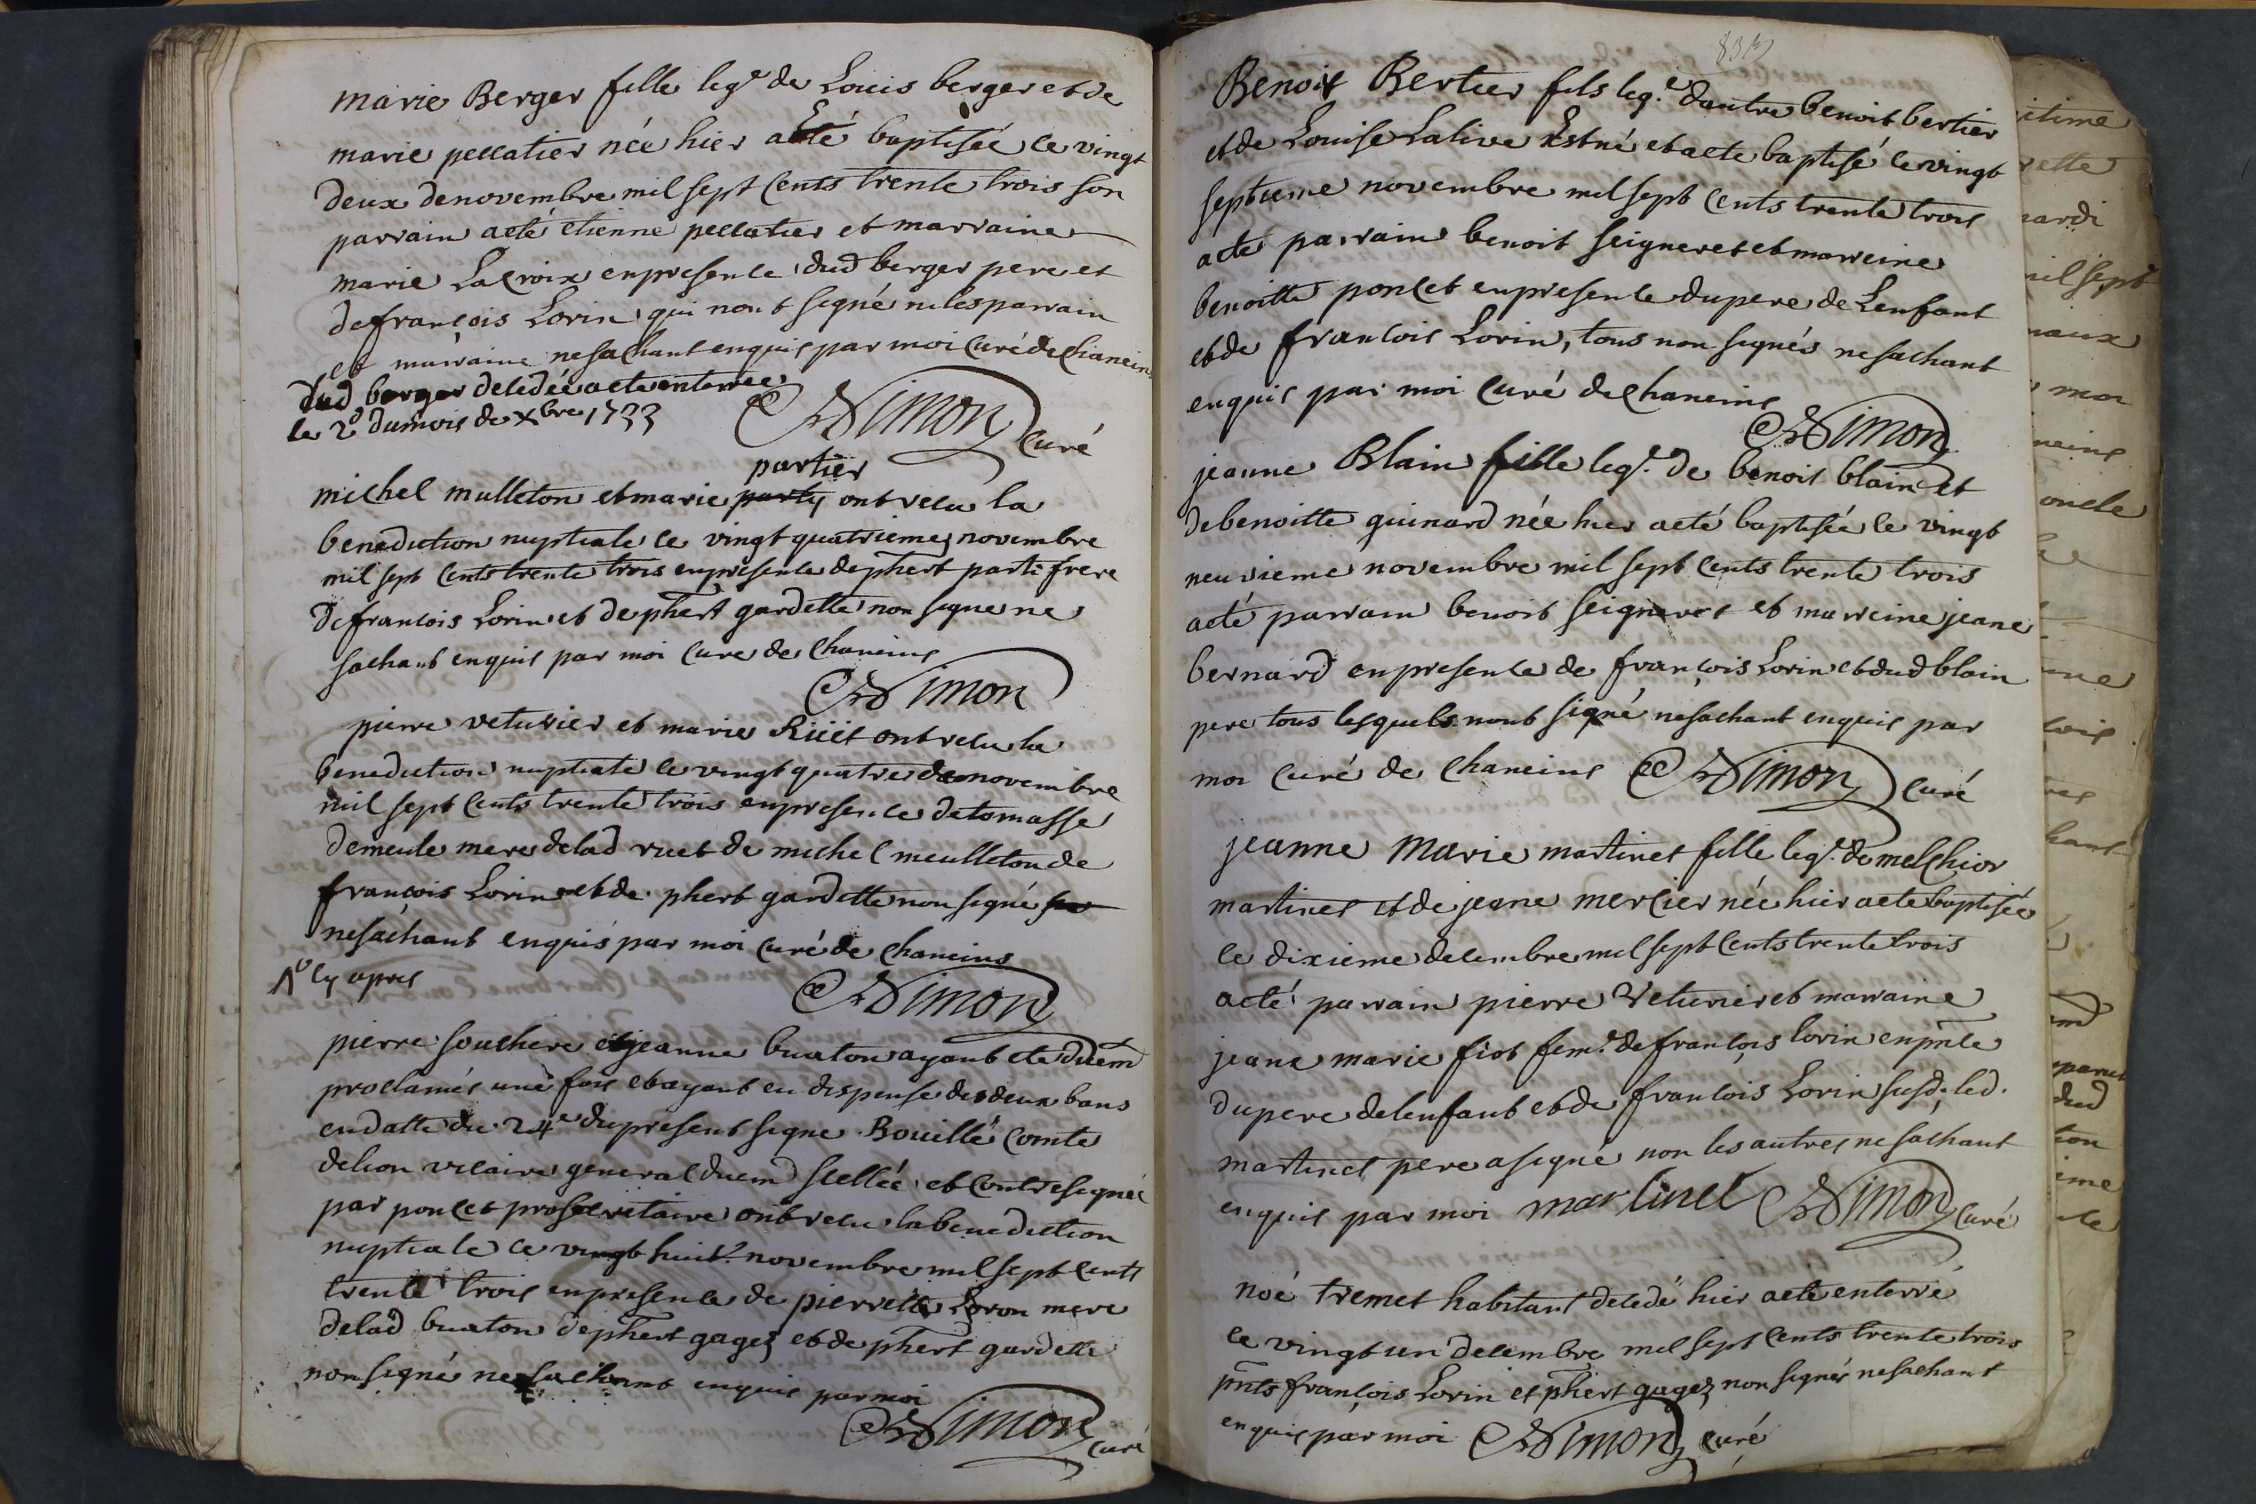 marie Berger fille leg.e de Louis berger et de
marie pellatier née hier a eté baptisée le vingt
deux de novembre mil sept cents trente trois son
parrain a eté etienne pellatier et marraine
marie Lacroix en presence dud berger pere et
de françois Lorin qui n'ont signé ni les parrain
et marraine ne sachant enquis par moi curé de chaneins
dud berger decedée a ete enterrée
le 2e du mois de xbre 1733
Simon curé
partier
michel mulleton et marie party ont recu la
benediction nuptiale le vingt quatrieme novembre
mil sept cents trente trois en presence de phert parti frere
de francois Lorin et de phert gardette non signe ne
sachant enquis par moi cure de chaneins
Simon
pierre veturier et marie Rüet ont recu la
benediction nuptiale le vingt quatre de novembre
mil sept cents trente trois en presence de tomasse
demeule mere de lad ruet de michel meulleton de
françois Lorin et de phert gardette non signé
ne sachant enquis par moi curé de chaneins
no cy apres
Simon
pierre souchere et jeanne buaton ayant ete duem
proclamés une fois et ayant eu dispense des deux bans
en datte du 24e du present signe Bouillé comte
de lion vicaire general duem scellée et contresignée
par poncet prosecretaire ont recu la benediction
nuptiale le vingt huit.e novembre mil sept cents
trente trois en presence de pierrette Loron mere
de lad buaton de phert gagez et de phert gardette
non signé ne sachant enquis par moi
Simon curé
833
Benoit Bertier fils leg.e d'autre benoit bertier
et de Louise Lalive Est né et a ete baptisé le vingt
septieme novembre mil sept cents trente trois
a ete parrain benoit seigneret et marreine
benoitte poncet en presence du pere de Lenfant
et de francois Lorin, tous non signés ne sachant
enquis par moi curé de chaneins
Simon
jeanne Blain fille leg.e de benoit blain et
de benoitte guinard née hier a eté baptisée le vingt
neuvieme novembre mil sept cents trente trois
a eté parrain benoit seigneret et marreine jeane
bernard en presence de françois Lorin et dud blain
pere tous lesquels n'ont signé ne sachant enquis par
moi curé de chaneins Simon curé
jeanne Marie martinet fille leg.e de melchior
martinet et de jeane mercier née hier a ete baptisée
le dixieme decembre mil sept cents trente trois
a eté parrain pierre Veturier et marraine
jeane marie fiot fem.e de françois lorin en pnce
du pere de lenfant et de françois Lorin susd. led.
martinet pere a signé non les autres ne sachant
enquis par moi martinet Simon curé
noé tremet habitant decedé hier a ete enterré
le vingt un decembre mil sept cents trente trois
pnts françois Lorin et phert gagez non signés ne sachant
enquis par moi Simon curé